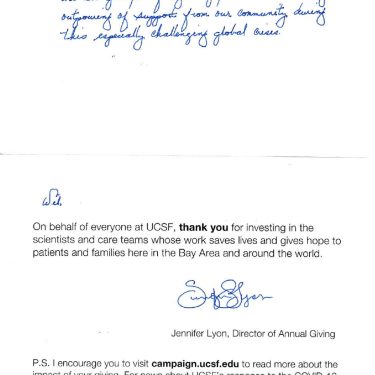 outpouring of support from our community during
this especially challenging global crisis.
We
On behalf of everyone at UCSF, thank you for investing in the
scientists and care teams whose work saves lives and gives hope to
patients and families here in the Bay Area and around the world.
Jennifer Lyon, Director of Annual Giving
P.S. I encourage you to visit campaign.ucsf.edu to read more about the
impact of your giving. For news about UCSF's response to the COVID-19